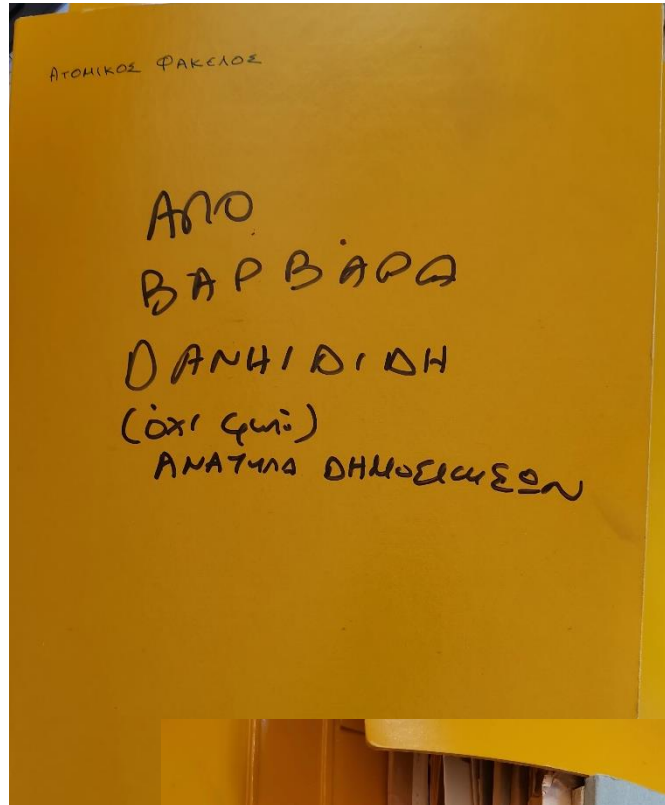 ΑΤΟΜΙΚΟΣ ΦΑΚΕΛΟΣ
ΑΠΟ
ΒΑΡΒΑΡΑ
ΔΑΝΗΙΔΙΔΗ
(όχι
ΑΝΑΤΥΠΑ ΔΗΜΟΣΙΕΥΣΕΩΝ